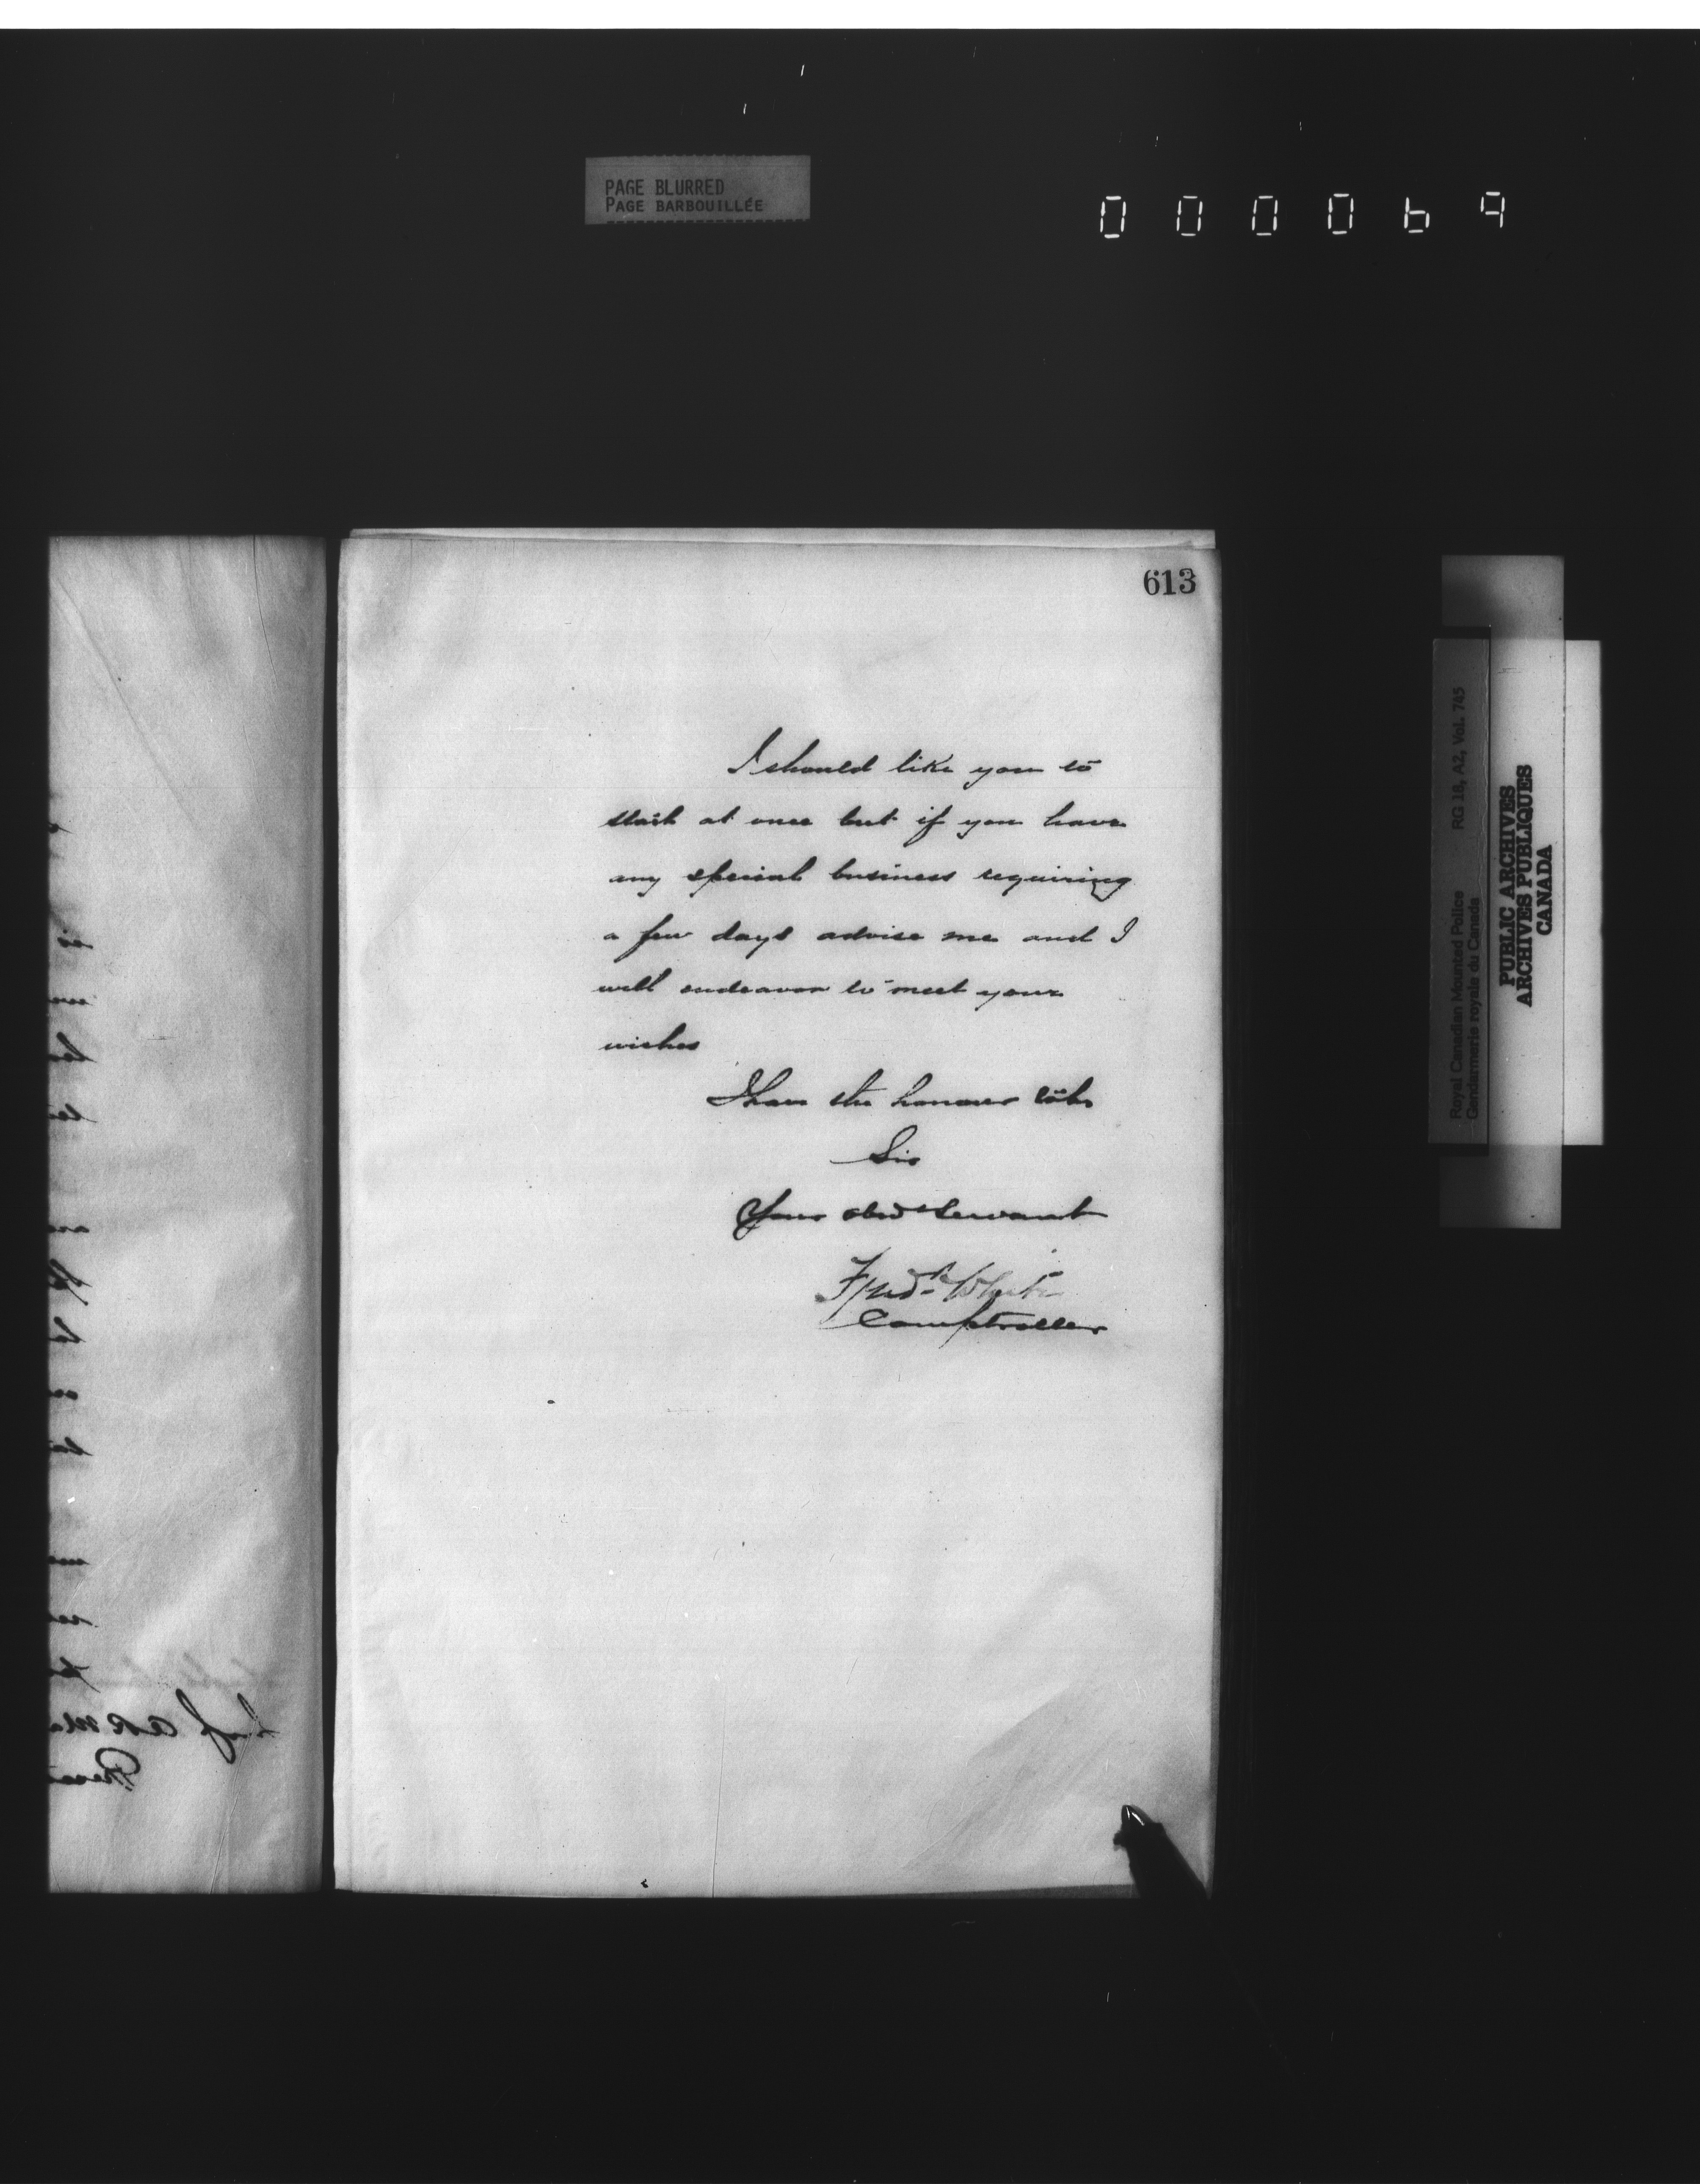 PAGE BLURRED
PAGE BARBOUILLÉE
000069
613
I should like you to
start at once but if you have
any special business requiring
a few days advise me and I
will endeavor to meet your
wishes
I have the honour to be
Sir
Your obdt Servant
Fredk White
Comptroller
Royal Canadian Mounted Police RG 18, A2, Vol. 745
Gendarmerie royale du Canada
PUBLIC ARCHIVES
ARCHIVES PUBLIQUES
CANADA